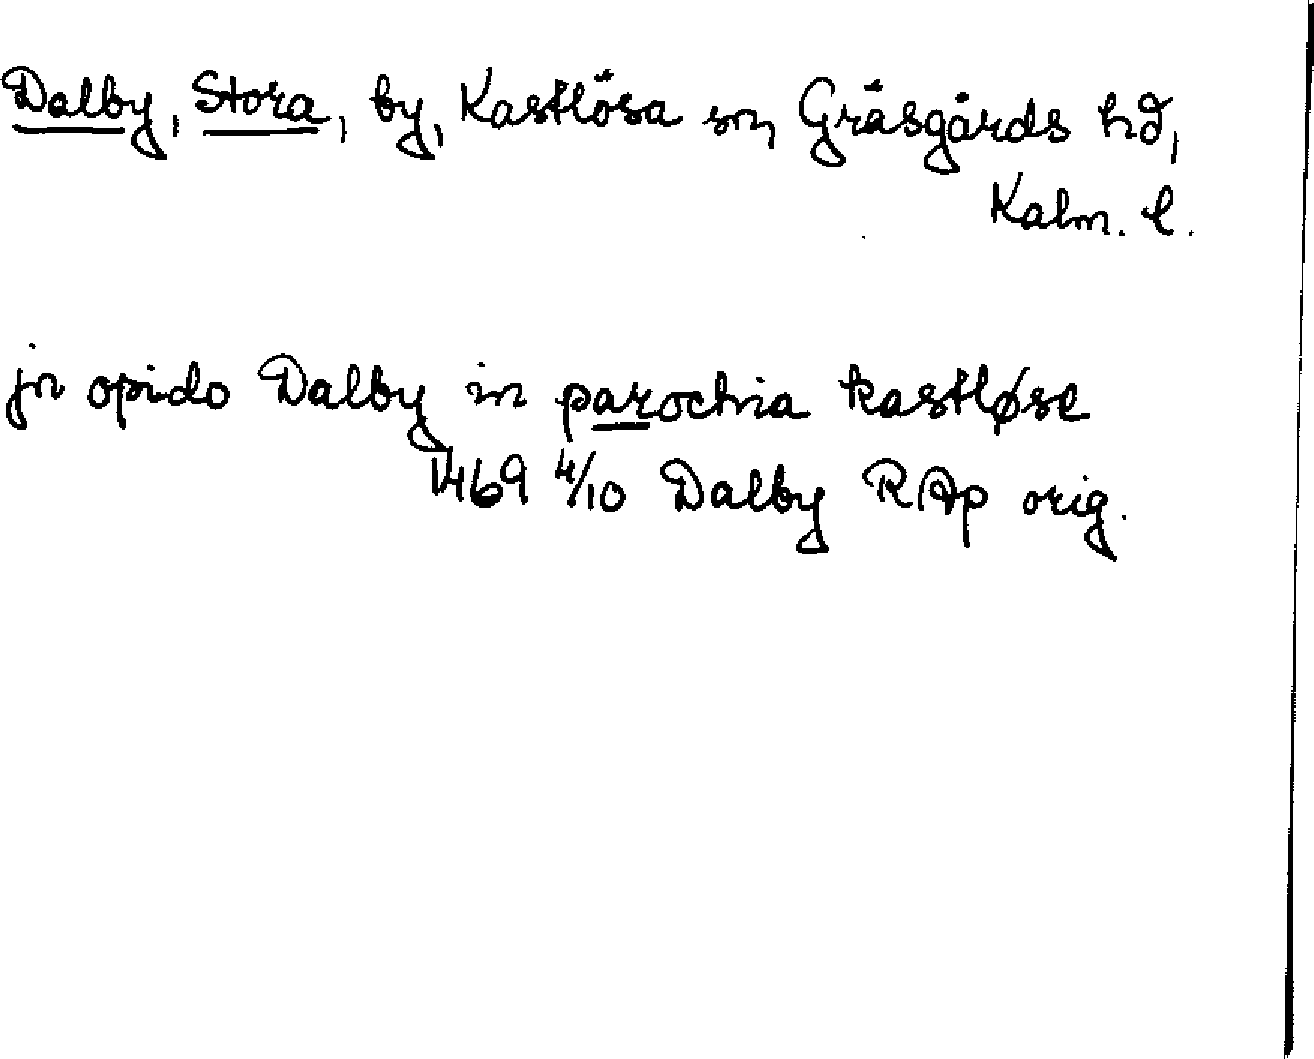 Dalby, Stora, by, Kastlösa sn, Gräsgårds hd,
Kalm. l.
jn opido Dalby in parochia kastløse
1469 4/10 Dalby RAp orig.